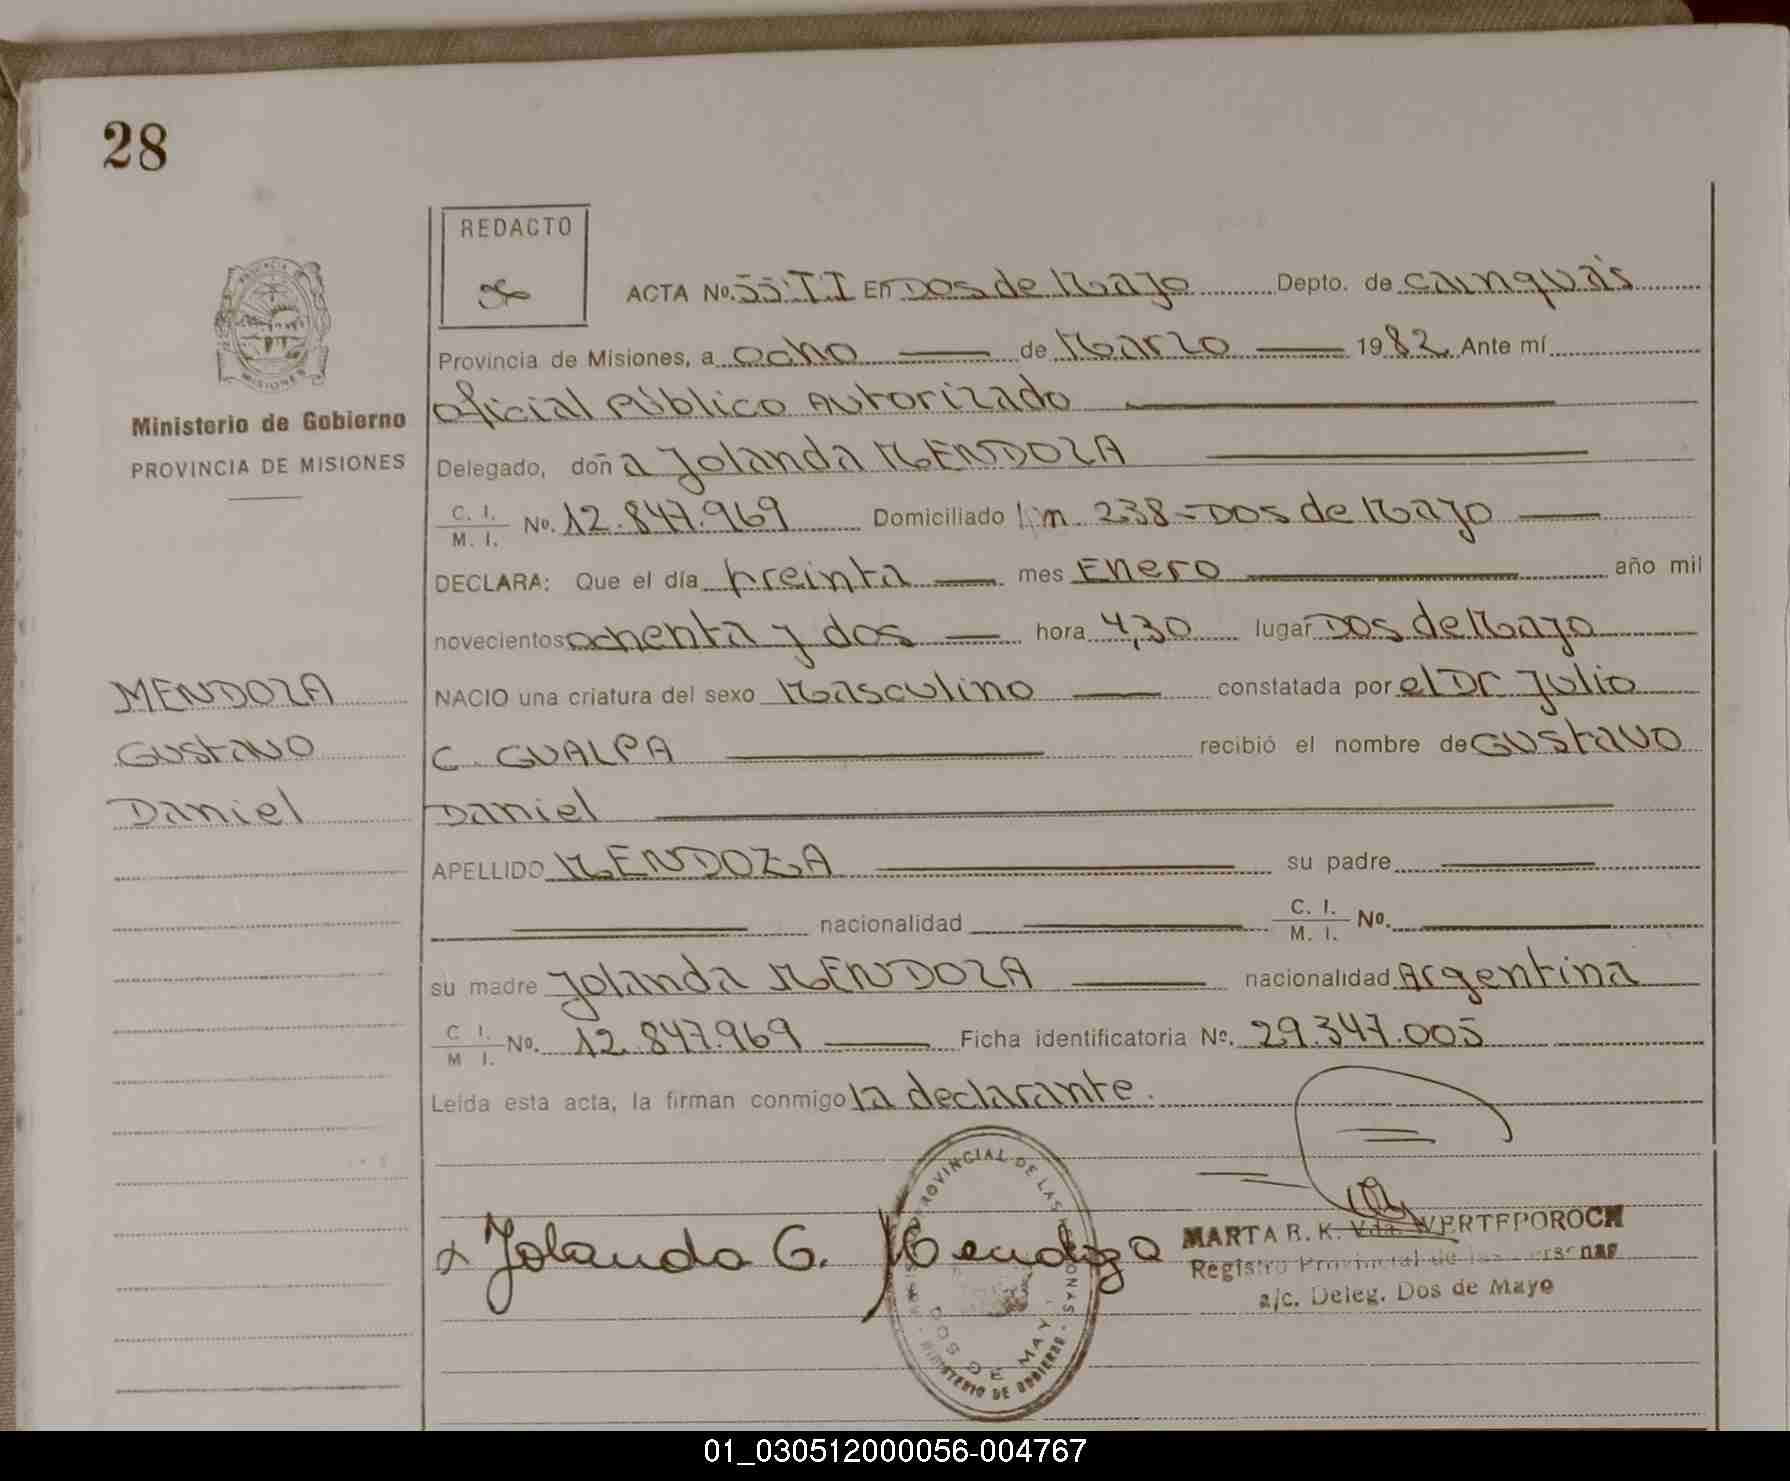 28
REDACTO
ACTA No. 55 TI En Dos de Mayo Depto. de Cainguás
Provincia de Misiones, a ocho de Marzo 1982 Ante mí
Oficial Público Autorizado
Delegado, doña Jolanda MENDOZA
C. I.
M. I. No. 12.847.969 Domiciliado km 238 - Dos de Mayo
DECLARA: Que el día treinta mes Enero año mil
novecientos ochenta y dos hora 4,30 lugar Dos de Mayo
NACIO una criatura del sexo Masculino constatada por el Dr Julio
C. GUALPA recibió el nombre de Gustavo
Daniel
APELLIDO MENDOZA su padre
nacionalidad C. I.
M. I. No.
su madre Jolanda MENDOZA nacionalidad Argentina
C I.
M I. No. 12.847.969 Ficha identificatoria No. 29.347.005
Leída esta acta, la firman conmigo la declarante.
Ministerio de Gobierno
PROVINCIA DE MISIONES
MENDOZA
Gustavo
Daniel
Jolanda G. Mendoza
PROVINCIAL DE LAS PERSONAS
DOS DE MAYO
MINISTERIO DE GOBIERNO
MARTA R. K. Vda. WERTEPOROCH
Registro Provincial de las Personas
a/c. Deleg. Dos de Mayo
01_030512000056-004767